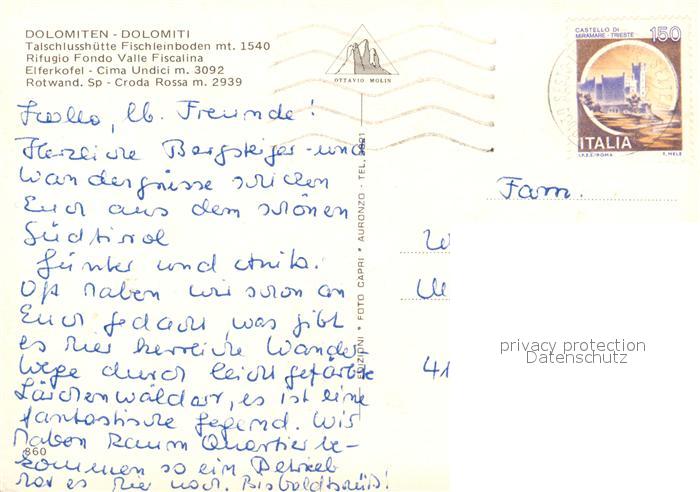 DOLOMITEN - DOLOMITI
Talschlusshütte Fischleinboden mt. 1540
Rifugio Fondo Valle Fiscalina
Elferkofel - Cima Undici m. 3092
Rotwand. Sp - Croda Rossa m. 2939
OTTAVIO MOLIN
CASTELLO DI
MIRAMARE - TRIESTE
150
ITALIA
I.P.Z.S. ROMA
Hallo, lb. Freunde!
Herzliche Bergsteiger- und
Wandergrüsse schicken
Euch aus dem schönen
Südtirol
Günter und Anita.
Oft haben wir schon an
Euch gedacht, was gibt
es hier herrliche Wander-
wege durch leicht gefärbte
Lärchenwälder, es ist eine
fantastische Gegend. Wir
haben kaum Quartier be-
kommen so ein Betrieb
es hier noch. Bis bald
860
EDIZIONI * FOTO CAPRI * AURONZO - TEL.
Fam.
41
privacy protection
Datenschutz